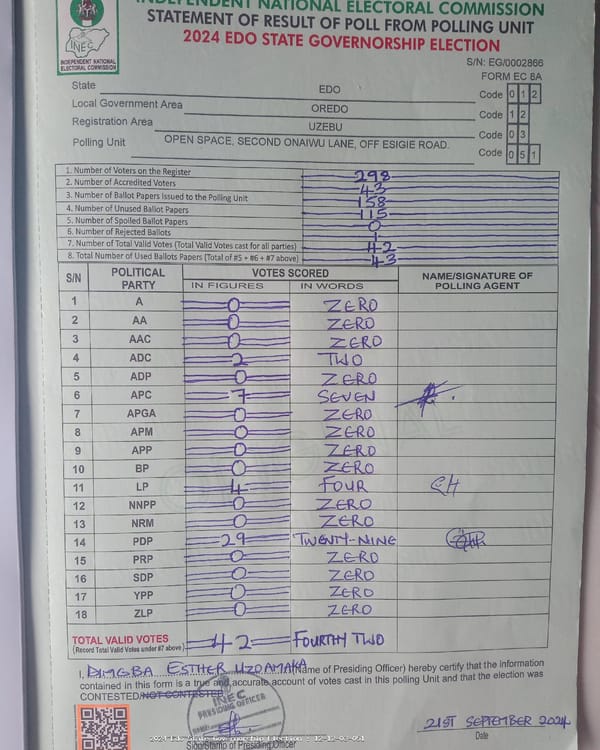 INDEPENDENT NATIONAL ELECTORAL COMMISSION
STATEMENT OF RESULT OF POLL FROM POLLING UNIT
2024 EDO STATE GOVERNORSHIP ELECTION
INEC
INDEPENDENT NATIONAL
ELECTORAL COMMISSION
S/N: EG/0002866
FORM EC 8A
State EDO Code 0 1 2
Local Government Area OREDO Code 1 2
Registration Area UZEBU Code 0 3
Polling Unit OPEN SPACE, SECOND ONAIWU LANE, OFF ESIGIE ROAD. Code 0 5 1
1. Number of Voters on the Register 298
2. Number of Accredited Voters 43
3. Number of Ballot Papers Issued to the Polling Unit 158
4. Number of Unused Ballot Papers 115
5. Number of Spoiled Ballot Papers 0
6. Number of Rejected Ballots 1
7. Number of Total Valid Votes (Total Valid Votes cast for all parties) 42
8. Total Number of Used Ballots Papers (Total of #5 + #6 + #7 above) 43
S/N POLITICAL PARTY VOTES SCORED NAME/SIGNATURE OF POLLING AGENT
IN FIGURES IN WORDS
1 A 0 ZERO
2 AA 0 ZERO
3 AAC 0 ZERO
4 ADC 2 TWO
5 ADP 0 ZERO
6 APC 7 SEVEN
7 APGA 0 ZERO
8 APM 0 ZERO
9 APP 0 ZERO
10 BP 0 ZERO
11 LP 4 FOUR
12 NNPP 0 ZERO
13 NRM 0 ZERO
14 PDP 29 TWENTY-NINE
15 PRP 0 ZERO
16 SDP 0 ZERO
17 YPP 0 ZERO
18 ZLP 0 ZERO
TOTAL VALID VOTES 42 FOURTH TWO
(Record Total Valid Votes under #7 above)
I, DIMGBA ESTHER UZOAMAKA (Name of Presiding Officer) hereby certify that the information
contained in this form is a true and accurate account of votes cast in this polling Unit and that the election was
CONTESTED/NOT CONTESTED
INEC
PRESIDING OFFICER
21ST SEPTEMBER 2024
Sign/Stamp of Presiding Officer Date